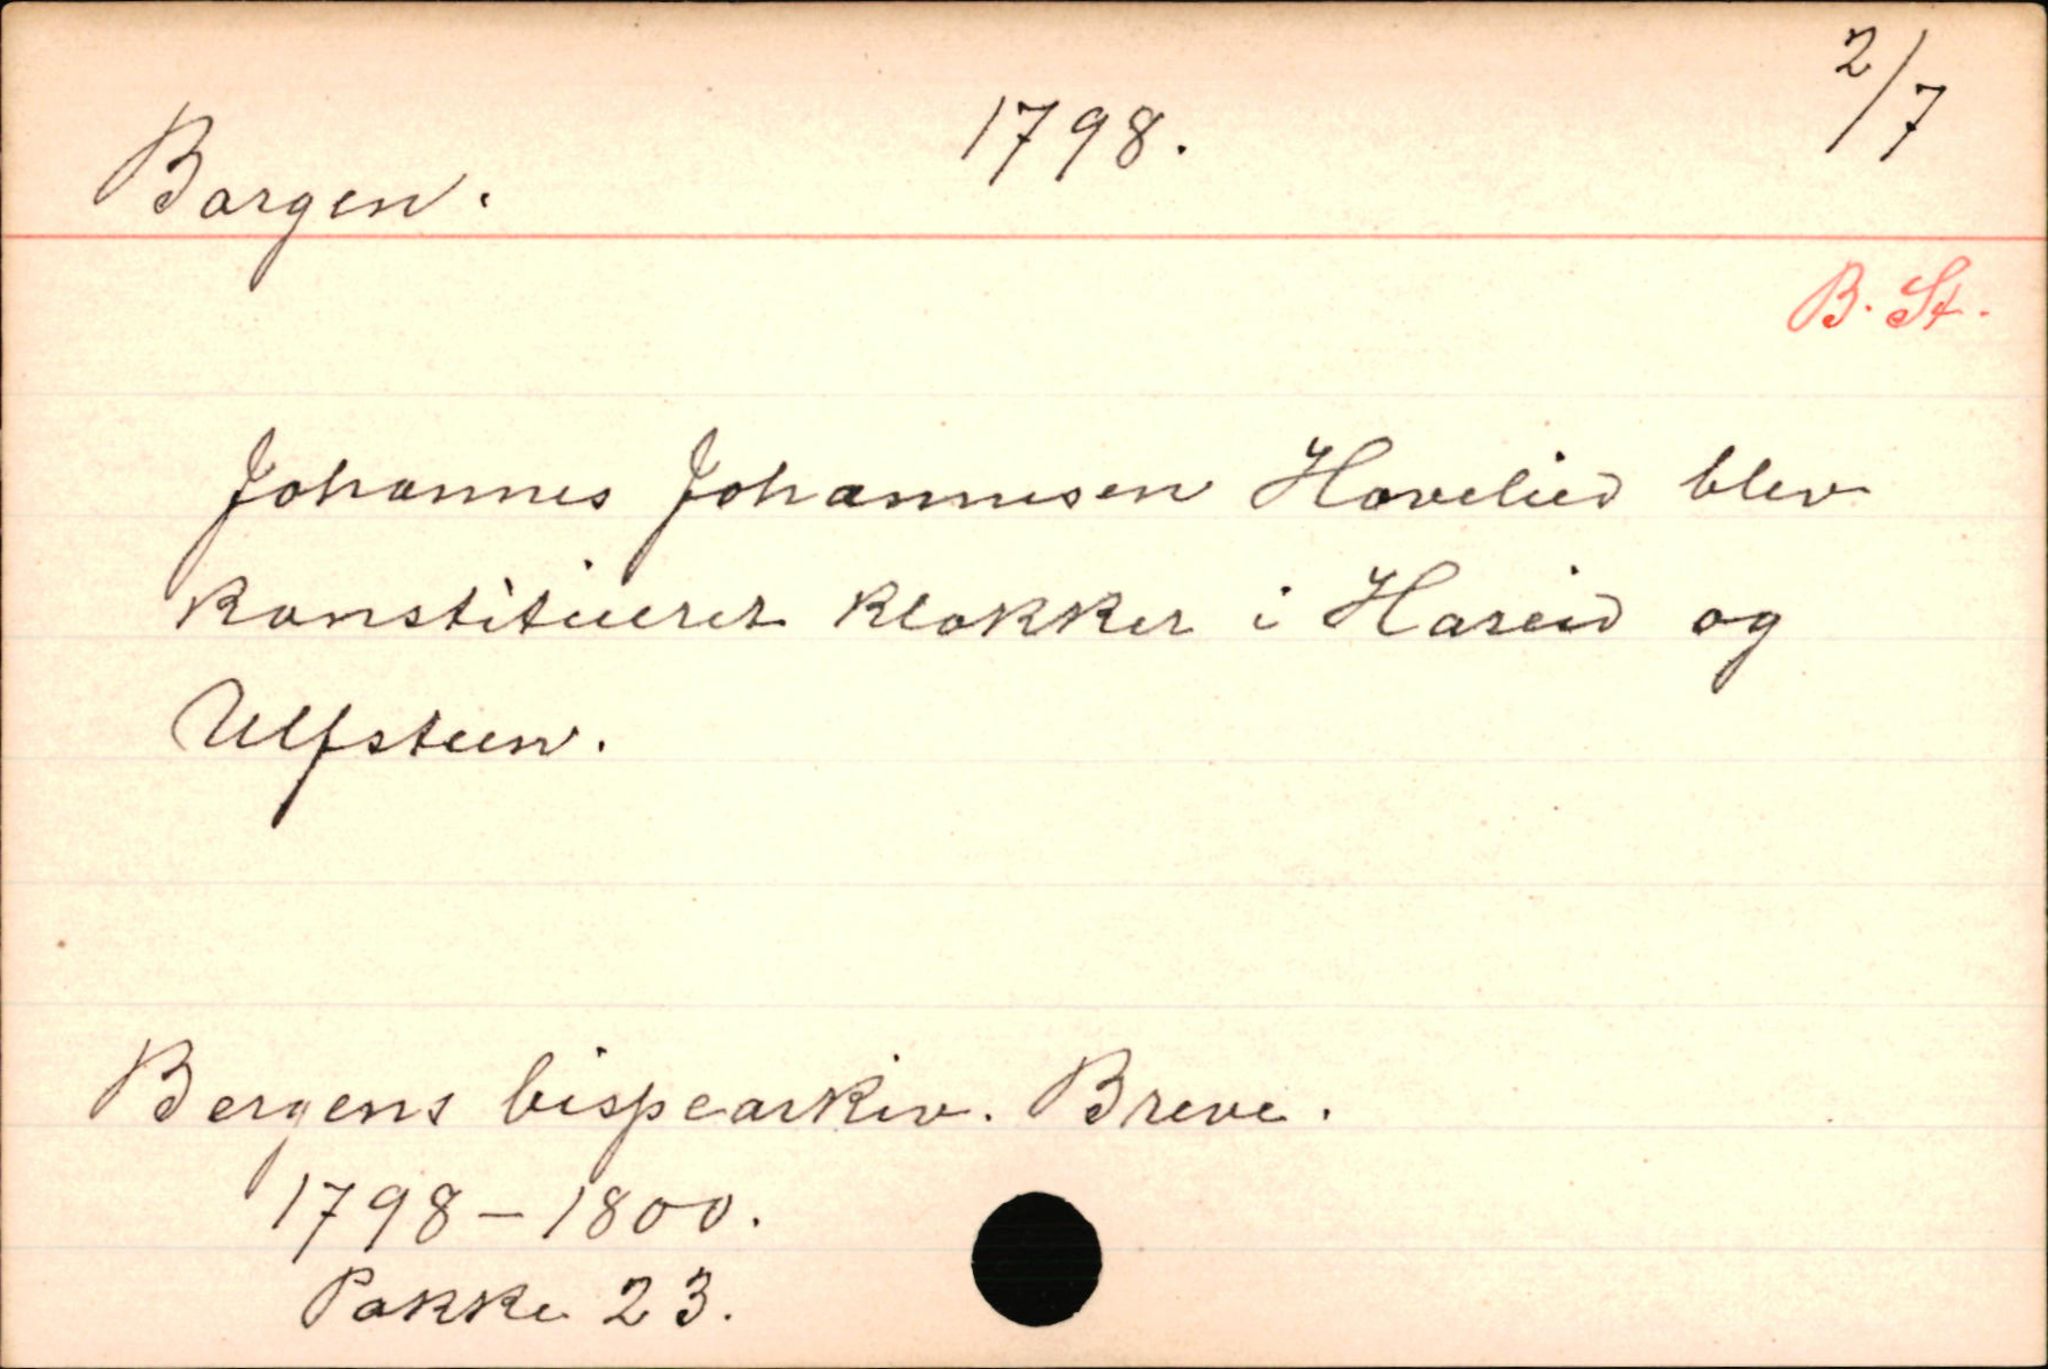 Borgen. 1798. 2/7
B. St.
Johannes Johannesen Havelied blev
konstitueret klokker i Hareid og
Ulfsteen.
Bergens bispearkiv. Breve.
1798-1800.
Pakke 23.